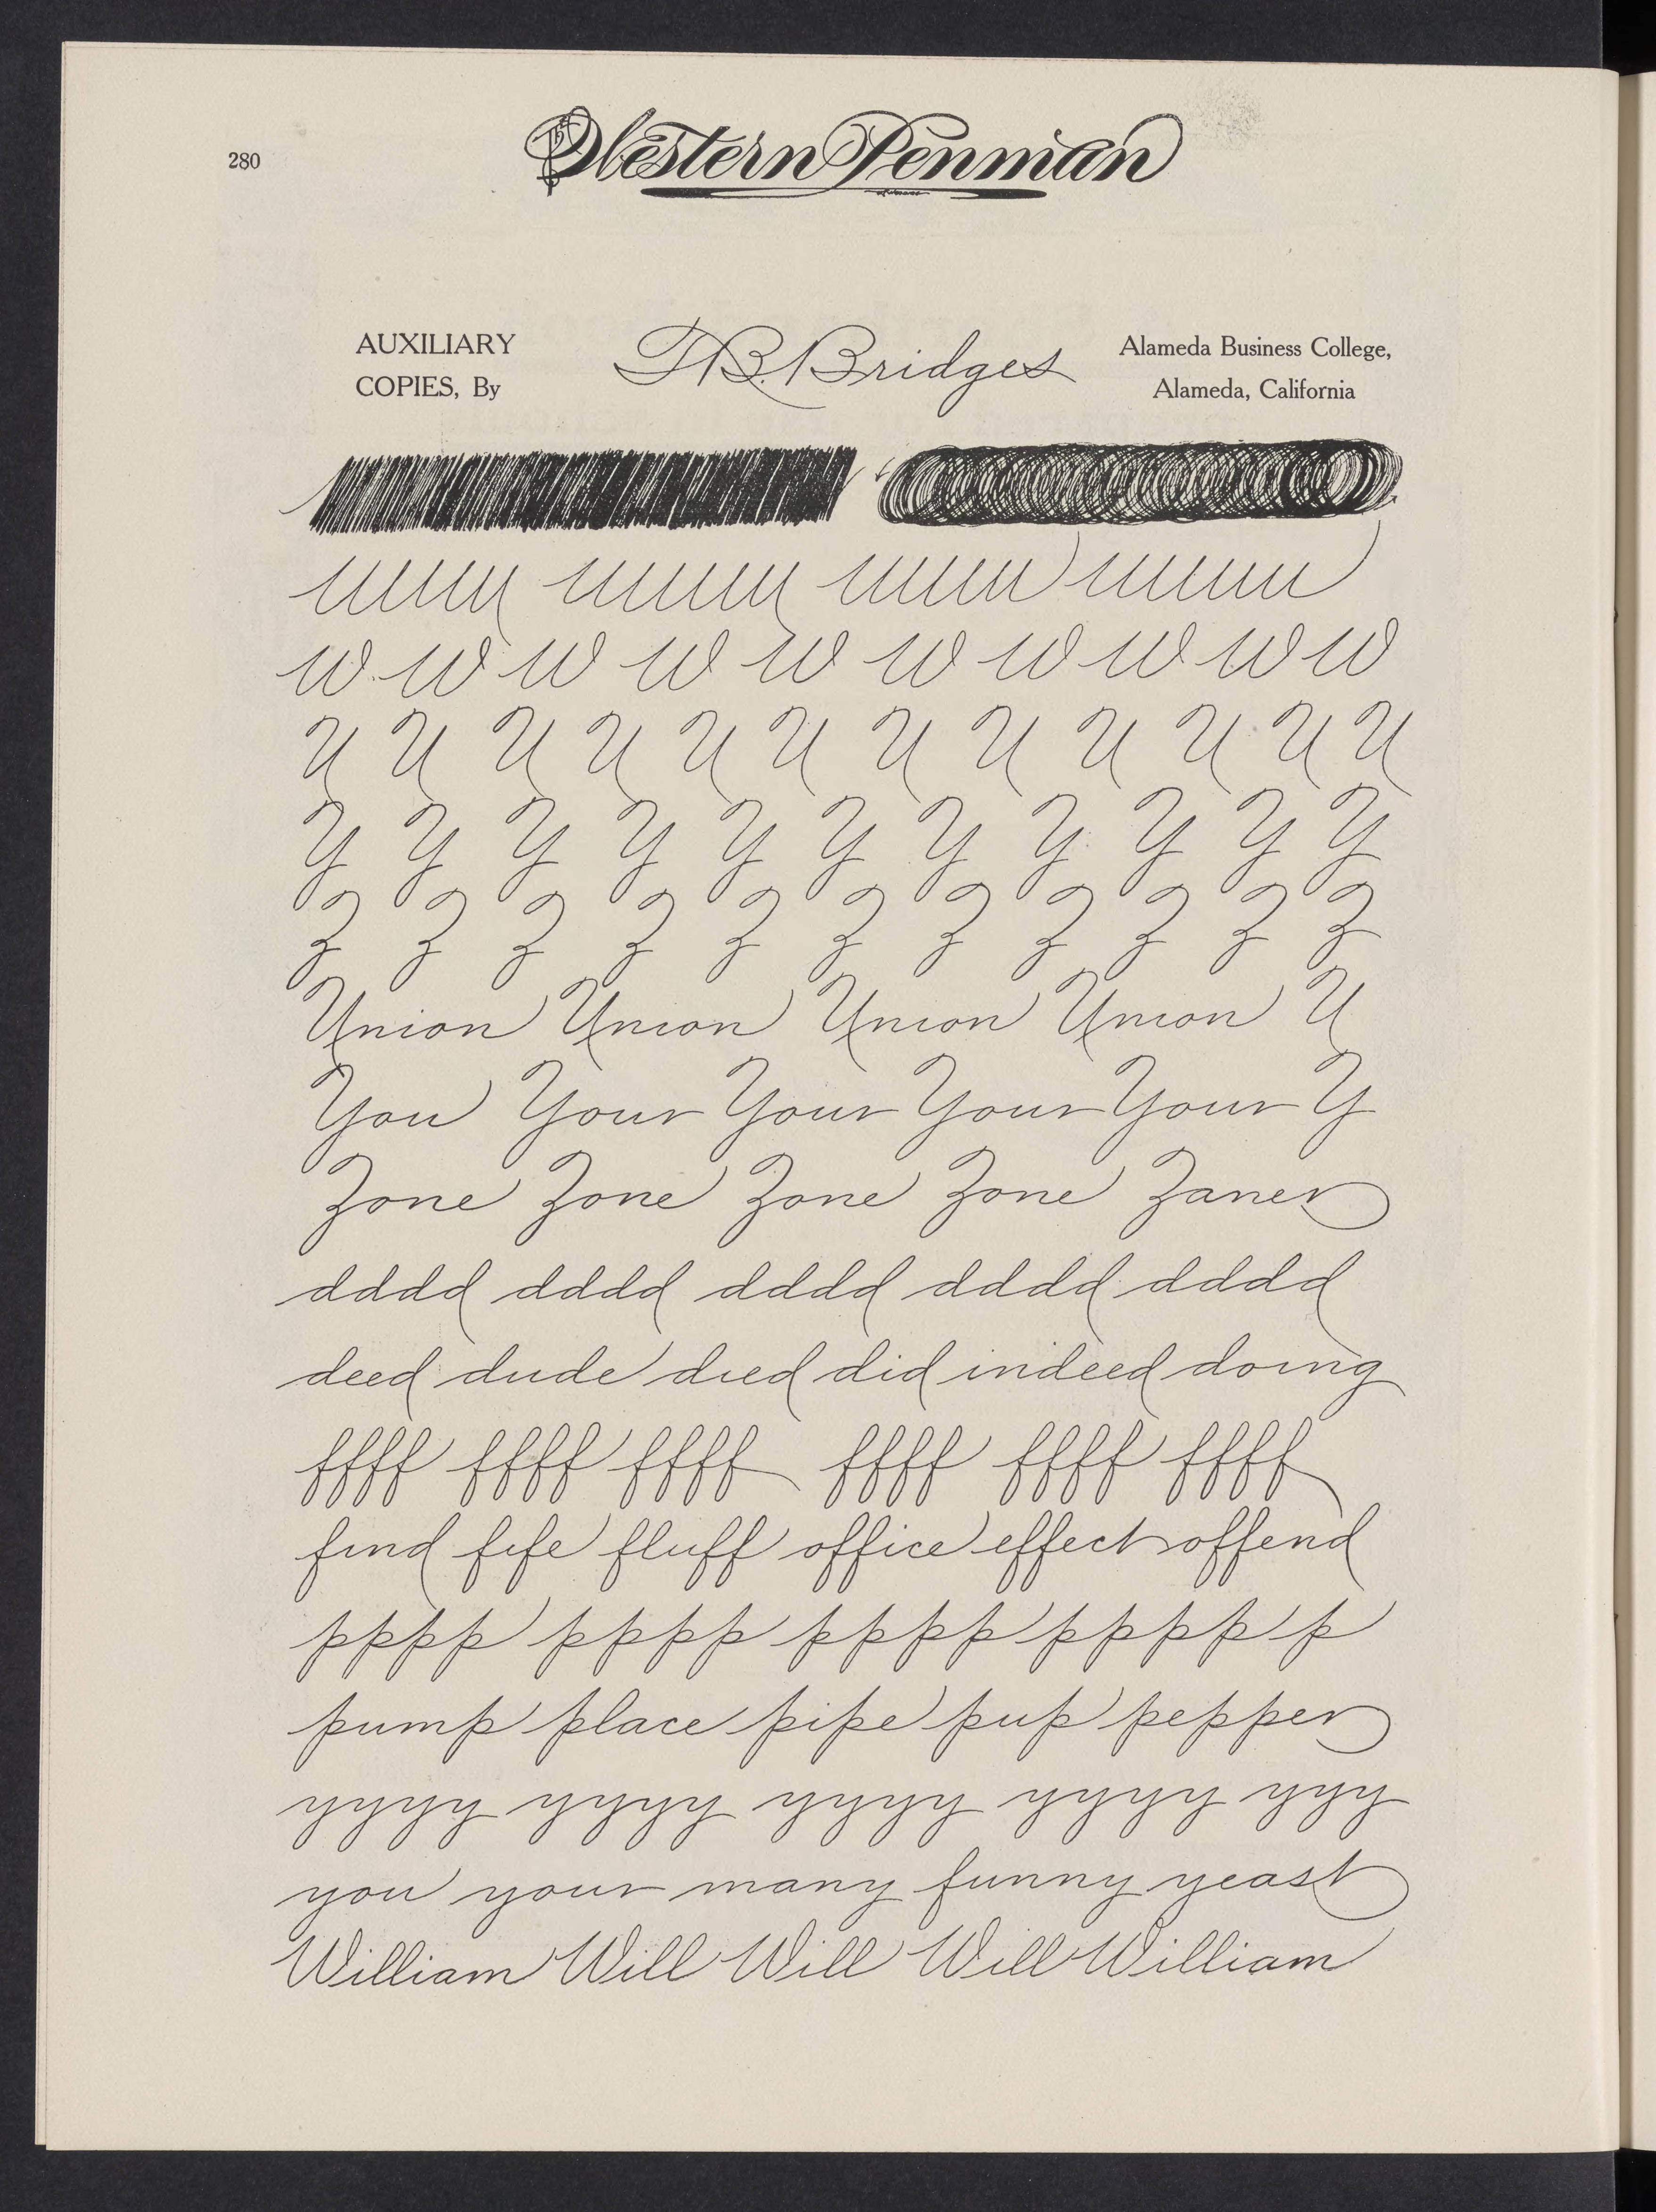 280
The Western Penman
AUXILIARY
COPIES, By
T.B. Bridges
Alameda Business College,
Alameda, California
uuuu uuuu uuuu uuuu
W W W W W W W W W W
U U U U U U U U U U U U
Y Y Y Y Y Y Y Y Y Y Y
Z Z Z Z Z Z Z Z Z Z Z
Union Union Union Union U
You Your Your Your Your Y
Zone Zone Zone Zone Zaner
dddd dddd dddd dddd dddd
deed dude died did indeed doing
ffff ffff ffff ffff ffff ffff
find fife fluff office effect offend
pppp pppp pppp ppppp p
pump place pipe pup pepper
yyyy yyyy yyyy yyyy yyy
you your many funny yeast
William Will Will Will William